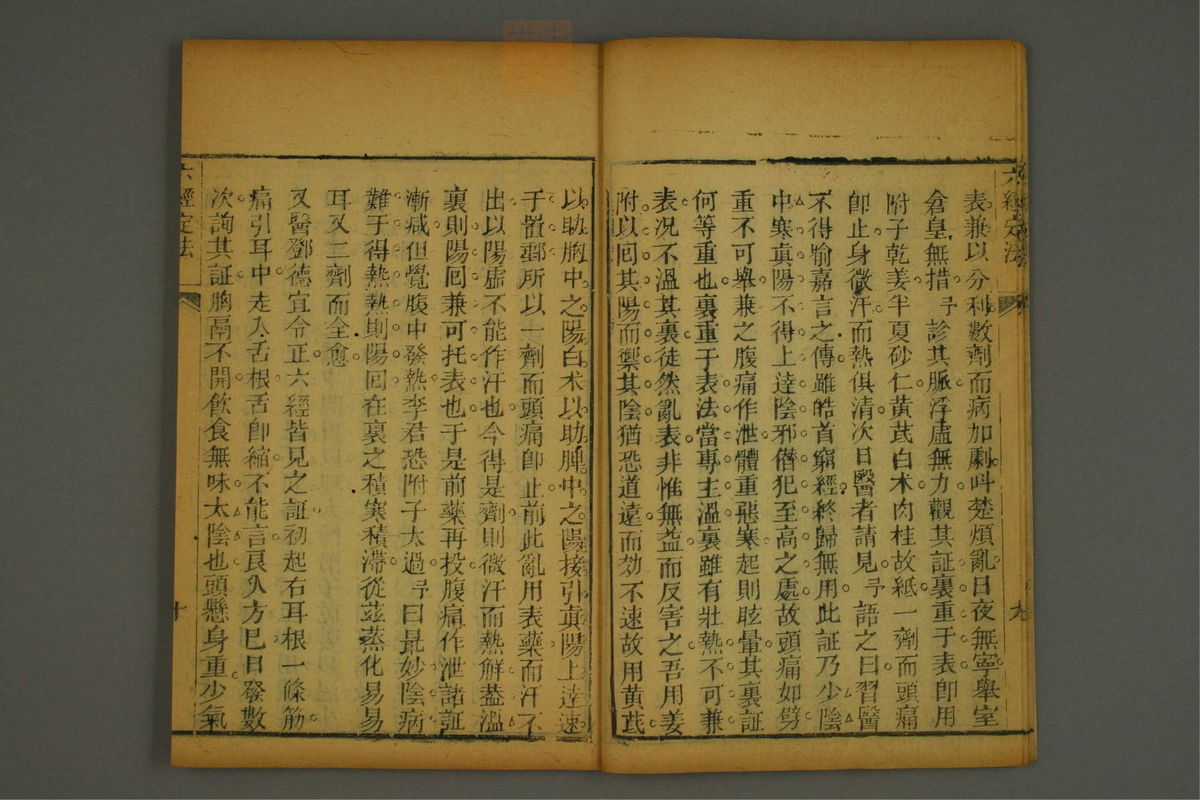 六經定法
九
表兼以分利數劑而病加劇呌楚煩亂日夜無寧舉室
倉皇無措予診其脈浮虛無力觀其証裏重于表卽用
附子乾姜半夏砂仁黃芪白朮肉桂故紙一劑而頭痛
卽止身微汗而熱俱清次日醫者請見予語之曰習醫
不得喻嘉言之傳雖皓首窮經終歸無用此証乃少陰
中寒眞陽不得上逹陰邪僭犯至高之處故頭痛如劈
重不可舉兼之腹痛作泄體重惡寒起則眩暈其裏証
何等重也裏重于表法當專主溫裏雖有壯熱不可兼
表况不溫其裏徒然亂表非惟無益而反害之吾用姜
附以囘其陽而禦其陰猶恐道遠而効不速故用黃芪
以助胸中之陽白朮以助脾中之陽接引眞陽上逹速
于置郵所以一劑而頭痛卽止前此亂用表藥而汗不
出以陽虛不能作汗也今得是劑則微汗而熱解葢溫
裏則陽囘兼可托表也于是前藥再投腹痛作泄諸証
漸减但覺腹中發熱李君恐附子太過予曰最妙陰病
難于得熱熱則陽囘在裏之積寒積滯從茲蒸化易易
耳又二劑而全愈
又醫鄧德宜令正六經皆見之証初起右耳根一條筋
痛引耳中走入舌根舌卽縮不能言良久方已日發數
次詢其証胸鬲不開飲食無味太陰也頭懸身重少氣
六經定法
十